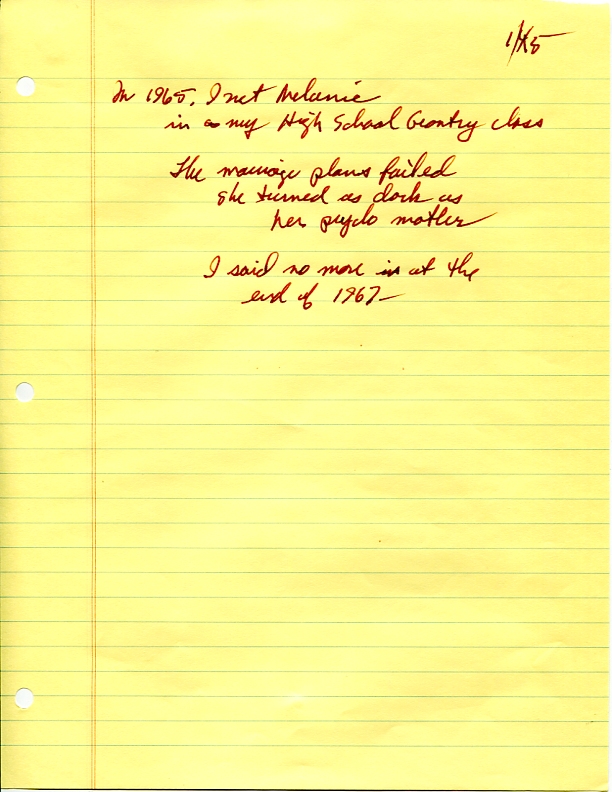 In 1965, I met Melanie
in my High School Geomtry class
The marriage plans failed
she turned as dark as
her psycho mother
I said no more at the
end of 1967